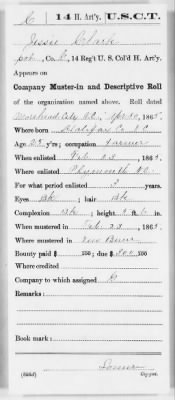 C | 14 H. Art'y. | U.S.C.T.
Jessie Clark
Pvt, Co. C, 14 Reg't U. S. Col'd H. Art'y.
Appears on
Company Muster-in and Descriptive Roll
of the organization named above. Roll dated
Morehead City N.C., Apr 30, 1865.
Where born Halifax Co N.C.
Age 23 y'rs; occupation Farmer
When enlisted Feb. 23, 1865.
Where enlisted Plymouth N.C.
For what period enlisted 3 years.
Eyes blk; hair blk
Complexion blk; height 5 ft. 6 in.
When mustered in Feb. 23, 1865.
Where mustered in New Bern
Bounty paid $ 100; due $ 100
Where credited
Company to which assigned
Remarks:
Book mark:
Copyist.